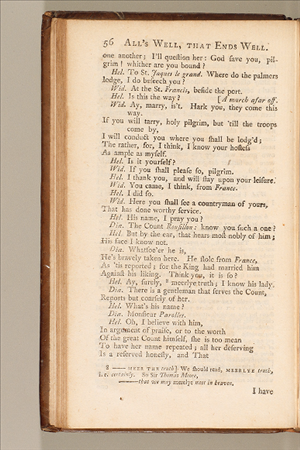 56 ALL'S WELL, THAT ENDS WELL.
one another; I'll question her: God save you, pil-
grim! whither are you bound?
Hel. To St. Jaques le grand. Where do the palmers
lodge, I do beseech you?
Wid. At the St. Francis, beside the port.
Hel. Is this the way? [A march afar off.
Wid. Ay, marry, is't. Hark you, they come this
way.
If you will tarry, holy pilgrim, but 'till the troops
come by,
I will conduct you where you shall be lodg'd;
The rather, for, I think, I know your hostess
As ample as myself.
Hel. Is it yourself?
Wid. If you shall please so, pilgrim.
Hel. I thank you, and will stay upon your leisure.
Wid. You came, I think, from France.
Hel. I did so.
Wid. Here you shall see a countryman of yours,
That has done worthy service.
Hel. His name, I pray you?
Dia. The Count Rousillon: know you such a one?
Hel. But by the ear, that hears most nobly of him;
His face I know not.
Dia. Whatsoe'er he is,
He's bravely taken here. He stole from France,
As 'tis reported; for the King had married him
Against his liking. Think you, it is so?
Hel. Ay, surely, 8 meer the truth; I know his lady.
Dia. There is a gentleman that serves the Count,
Reports but coarsely of her.
Hel. What's his name?
Dia. Monsieur Parolles.
Hel. Oh, I believe with him,
In argument of praise, or to the worth
Of the great Count himself, she is too mean
To have her name repeated; all her deserving
Is a reserved honesty, and That
8 —— MEER THE truth] We should read, MEERLY truth,
i. e. certainly. So Sir Thomas Moore,
——that we may
I have